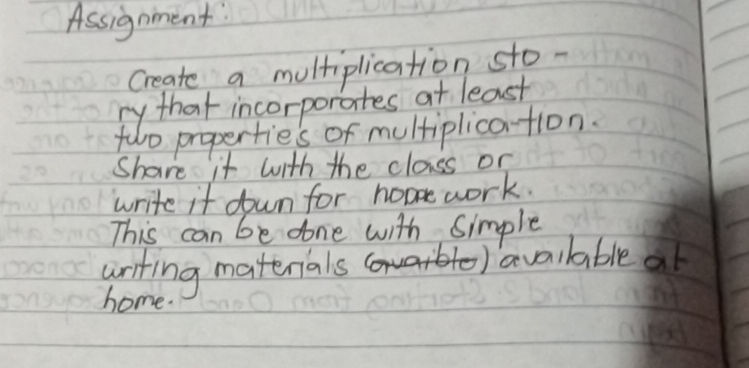 Assignment:
Create a multiplication sto-
ry that incorporates at least
two properties of multiplication.
Share it with the class or
write it down for home work.
This can be done with simple
writing materials (avaible) available at
home.